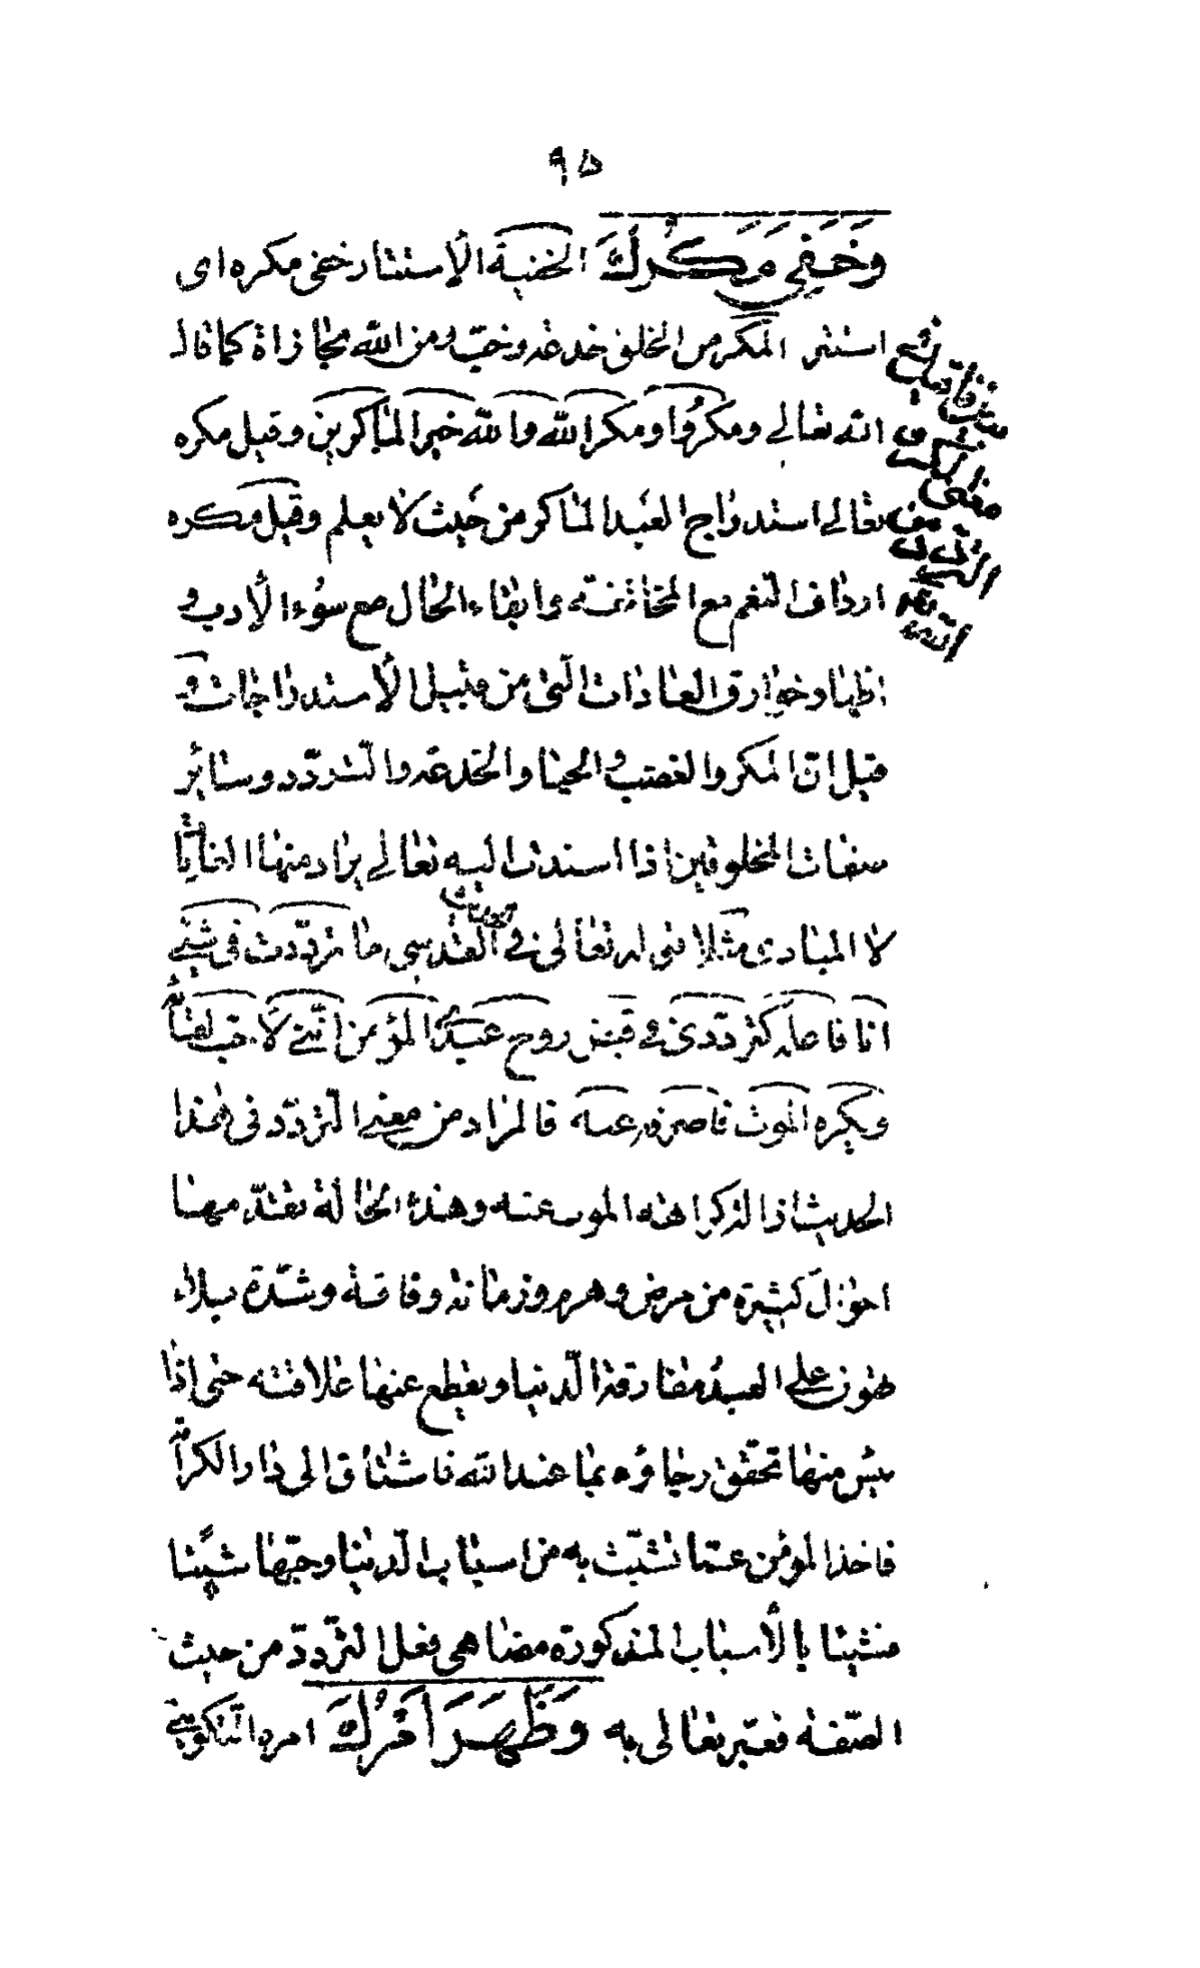 ٩٥
وَخَفِيَ مَكْرُكَ الخفية الإستتار خفى مكره اى
استتر المكر من الخلق خدعة وخبّ ومن الله مجازاة كما قال
الله تعالى ومكروا ومكر الله والله خير الماكرين وقيل مكره
تعالى استدراج العبد الماكر من حَيث لا يعلم وقيل مكره
ارداف النّعم مع المخالفة وابقاء الحال مع سوُء الأدب و
اظهار خوارق العادات الّتى من قبيل الأستدراجات و
قيل انّ المكر والغضب والحيا والخدعة والتّردّد وسائر
صفات المخلوقين اذا اسندت اليه تعالى يراد منها الغايات
لا المبادى مثلا قوله تعالى فى الحديث القدسى ما تردّدت فى شيئ
انا فاعله كتردّدى فى قبض روح عبدى المؤمن انّنى لأحبّ لقائه
ويكره الموت فاصرفه عنه فالمراد من معنى التّردّد فى هذا
الحديث اذالة كراهة الموت عنه وهذه الحالة يقتدّمها
احوال كثيرة من مرض وهرم وزمانة وفاقة وشدّة بلاء
يهون على العبد مفارقة الّدنيا ويقطع عنها علاقته حتى اذا
يئس منها تحقّق رجاؤه بما عند الله فاشتاق الى دار الكرامة
فاخذ المؤمن عمّا تشبّث به من اسباب الّدنيا وحبّها شيئا
فشيئا بالأسباب المذكورة مضاهى فعل التّردد من حيث
الصّفة فعبّر تعالى به وَظَهَرَ اَمْرُكَ امره التّكوينى